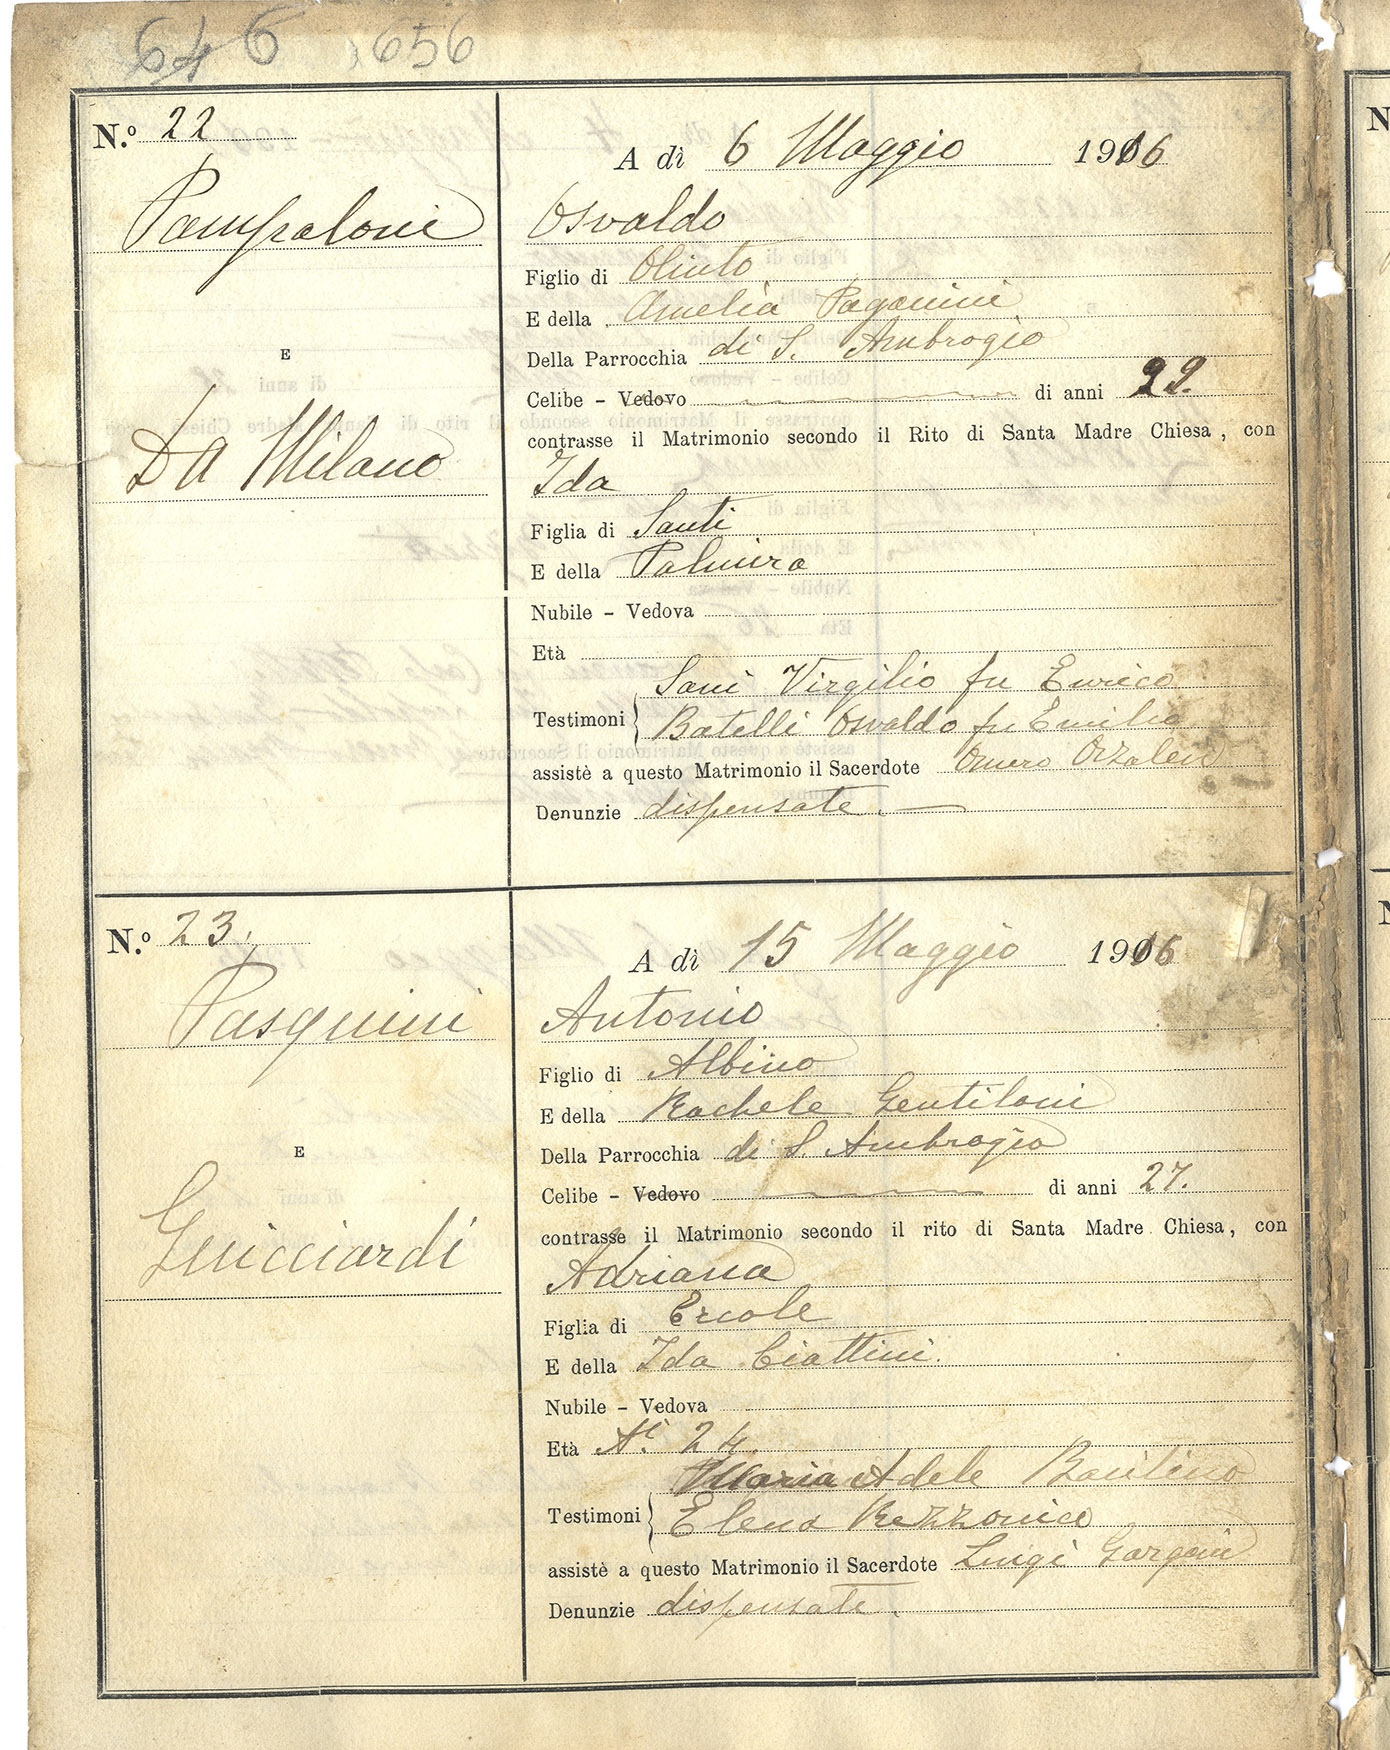 646 656
N.º 22
A dì 6 Maggio 1916
Pampaloni
Osvaldo
Figlio di Olinto
E della Amelia Paganini
Della Parrocchia di S. Ambrogio
E
Celibe – Vedovo di anni 22.
contrasse il Matrimonio secondo il Rito di Santa Madre Chiesa, con
Da Milano
Ida
Figlia di Santi
E della Palmira
Nubile – Vedova
Età
Testimoni { Sani Virgilio fu Enrico
Batelli Osvaldo fu Emilio
assistè a questo Matrimonio il Sacerdote Omero Orzalesi
Denunzie dispensate.
N.º 23.
A dì 15 Maggio 1916
Pasquini
Antonio
Figlio di Albino
E della Rachele Gentiloni
Della Parrocchia di S. Ambrogio
E
Celibe – Vedovo di anni 27.
contrasse il Matrimonio secondo il rito di Santa Madre Chiesa, con
Guicciardi
Adriana
Figlia di Ercole
E della Ida Ciattini.
Nubile – Vedova
Età Ai 24.
Testimoni { Maria Adele
Elena Rezzonico
assistè a questo Matrimonio il Sacerdote Luigi Gargani
Denunzie dispensate.